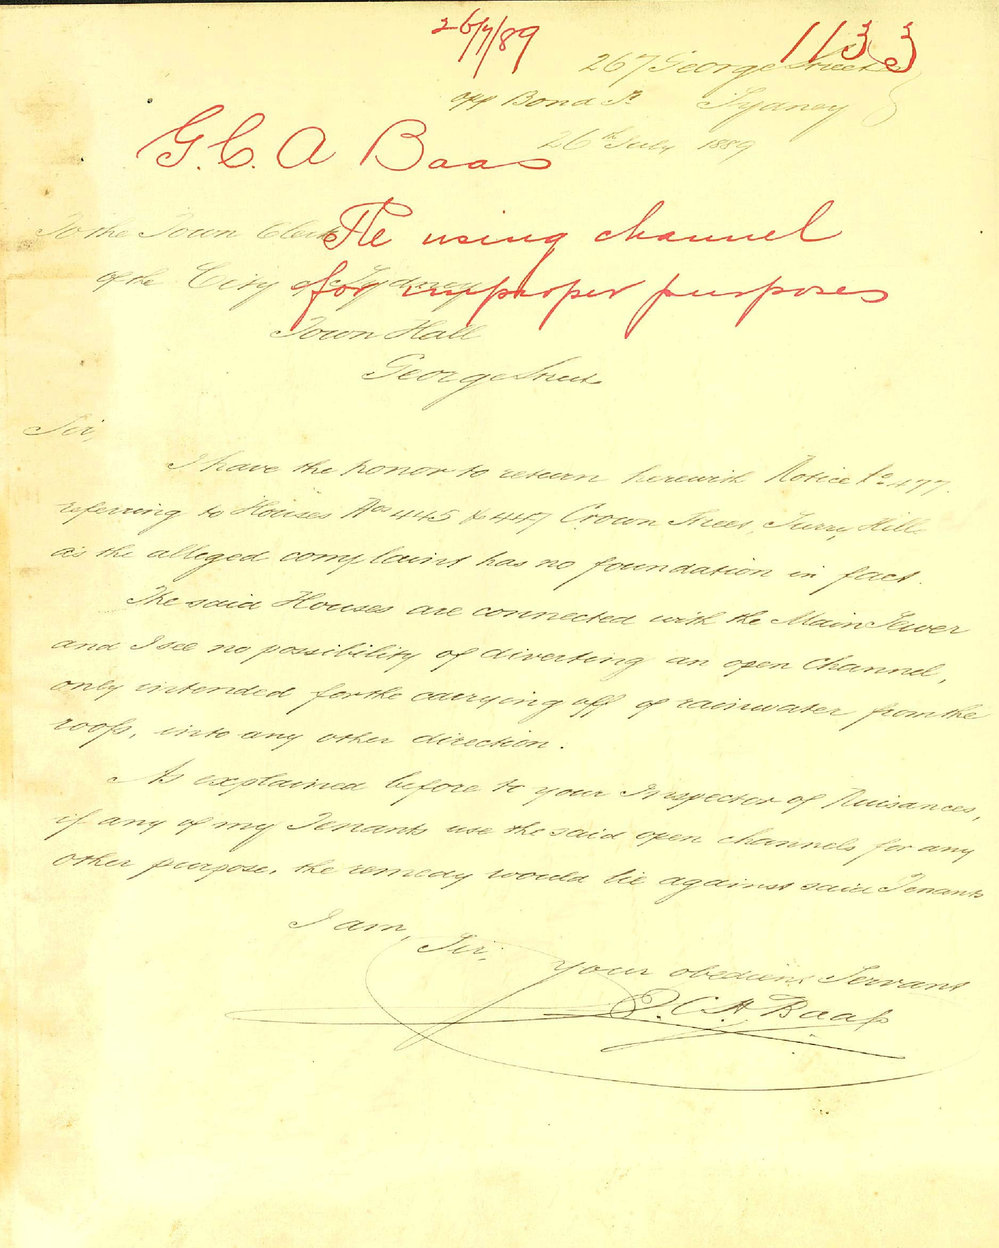 26/7/89
1133
267 George Street
opp Bond St. Sydney
26th July 1889
G. C. A Baas
Re using channel
for improper purposes
To the Town Clerk
of the City of Sydney
Town Hall
George Street
Sir,
I have the honor to return herewith Notice No 477.
referring to Houses Nos 445 & 447 Crown Street, Surry Hills
as the alleged complaint has no foundation in fact.
The said Houses are connected with the Main Sewer
and I see no possibility of diverting an open channel,
only intended for the carrying off of rainwater from the
roofs, into any other direction.
As explained before to your Inspector of Nuisances,
if any of my Tenants use the said open channels for any
other purpose, the remedy would lie against said Tenants
I am,
Sir,
your obedient Servant
G. C. A. Baass